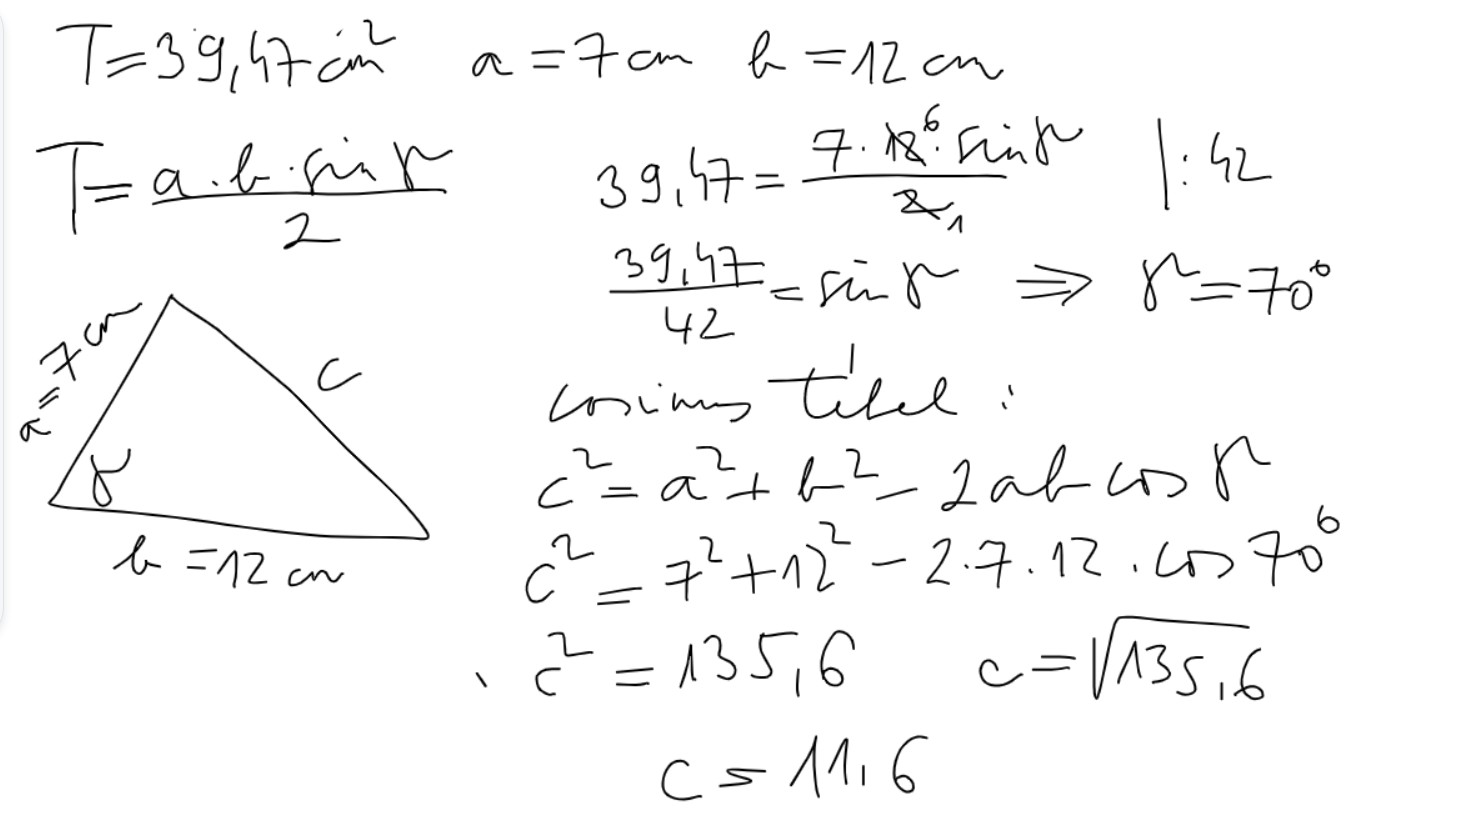 T=39,47cm² a=7cm b=12cm
T=a·b·sinγ/2
39,47=7·12⁶·sinγ/2₁ |:42
39,47/42=sinγ ⇒ γ=70°
a=7cm
c
γ
b=12cm
cosinus tétel:
c²=a²+b²-2abcosγ
c²=7²+12²-2·7·12·cos70°
c²=135,6 c=√135,6
c=11,6